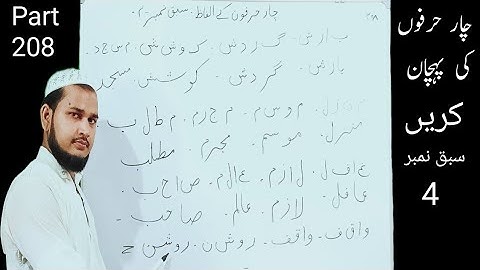 Part
208
چار حرفوں
کی پہچان
کریں
سبق نمبر
4
۲۰۸
چار حرفوں کے الفاظ۔ سبق نمبر ۴۔
ب ا ر ش - گ ر د ش - ک و ش ش - م س ج د -
بارش - گردش - کوشش - مسجد
م ن ز ل - م و س م - م ج ر م - م ط ل ب -
منزل - موسم - مجرم - مطلب
غ ا ف ل - ل ا ز م - ع ا ل م - ص ا ح ب -
غافل - لازم - عالم - صاحب -
و ا ق ف - واقف - ر و ش ن - روشن